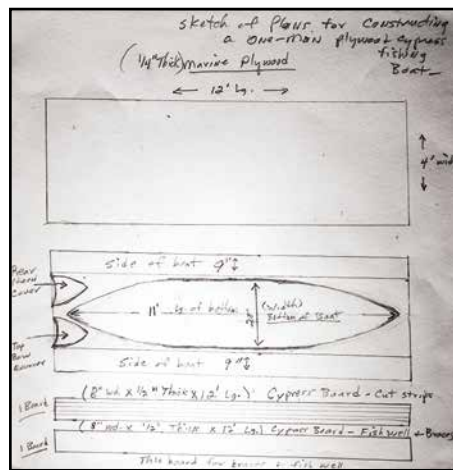 sketch of Plans for Constructing
a one-man plywood cypress
fishing
Boat-
(1/4" Thick) marine Plywood
← 12' Lg. →
4' wide
Side of boat 9"
Rear
Cover
11' Lg. of bottom
(Width)
Bottom of Boat
Top
Bow
Side of boat 9"
1 Board
(8" wd. x 1/2" Thick x 12' Lg.) Cypress Board - Cut strips
(8" wd. x 1/2" Thick x 12' Lg.) Cypress Board - Fish well + Braces
1 Board
This board for braces + fish well